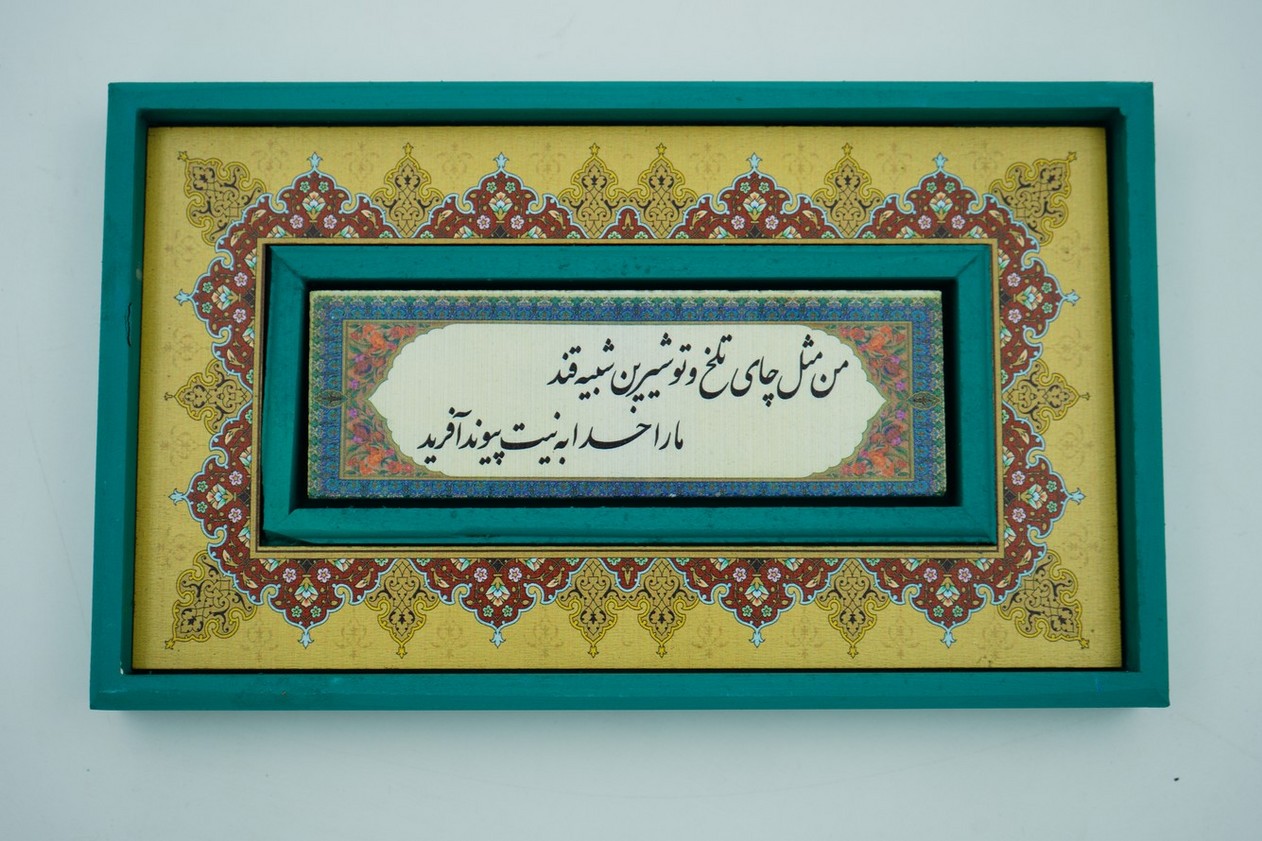 من مثل چای تلخ و تو شیرین شبیه قند
ما را خدا به نیت پیوند آفرید